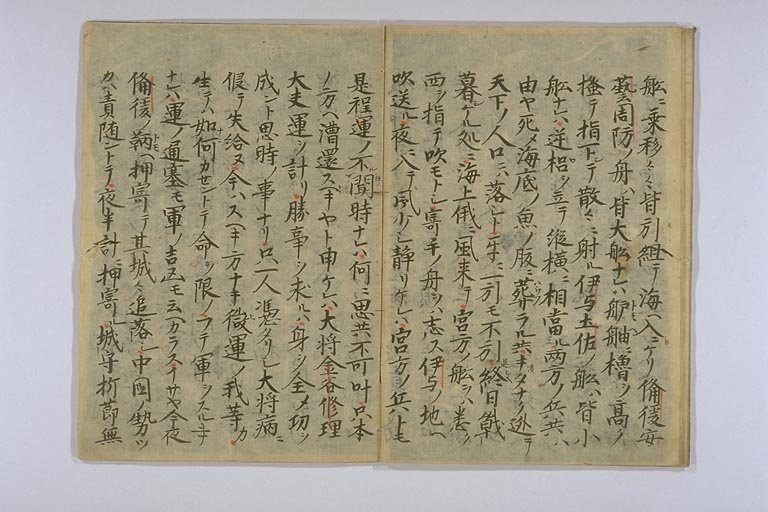 舩ニ乗移々々皆引組テ海ヘ入ニケリ備後安
藝周防ノ舟ハ皆大舩ナレハ舻舳ニ櫓ヲ高ク
掻テ指下シテ散々ニ射ル伊与土佐ノ舩ハ皆小
舩ナレハ逆櫓ヲ立テ縦横ニ相當ル両方ノ兵共ハ
由ヤ死メ海底ノ魚ノ腹ニ葬ラル共キタナク逃テ
天下ノ人口ニハ落シト互ニ一引モ不引終日戦
暮ケル処ニ海上俄ニ風来テ宮方ノ舩ヲハ悉ク
西ヲ指テ吹モトシ寄手ノ舟ヲハ志ス伊与ノ地ヘ
吹送ル夜ニ入テ風少シ静リケレハ宮方ノ兵トモ
是程運ノ不開時ナレハ何ニ思共不可叶只本
ノ方ヘ漕還スヘキヤト申ケレハ大将金谷修理
大夫運ヲ計リ勝事ヲ求ルハ身ヲ全メ功ヲ
成ント思時ノ事ナリ只一人憑タリシ大将病ニ
侵テ失給ヌ今ハスヘキ方ナキ微運ノ我等カ
生テハ如何カセントテ命ヲ限ニテ軍ヲスル
ナレハ運ノ通塞モ軍ノ吉凶モ云ヘカラスイサヤ今夜
備後ノ鞆ヘ押寄テ其城ヲ追落シ中国勢ツ
カハ責随ントテ夜半計ニ押寄ル城守折節無